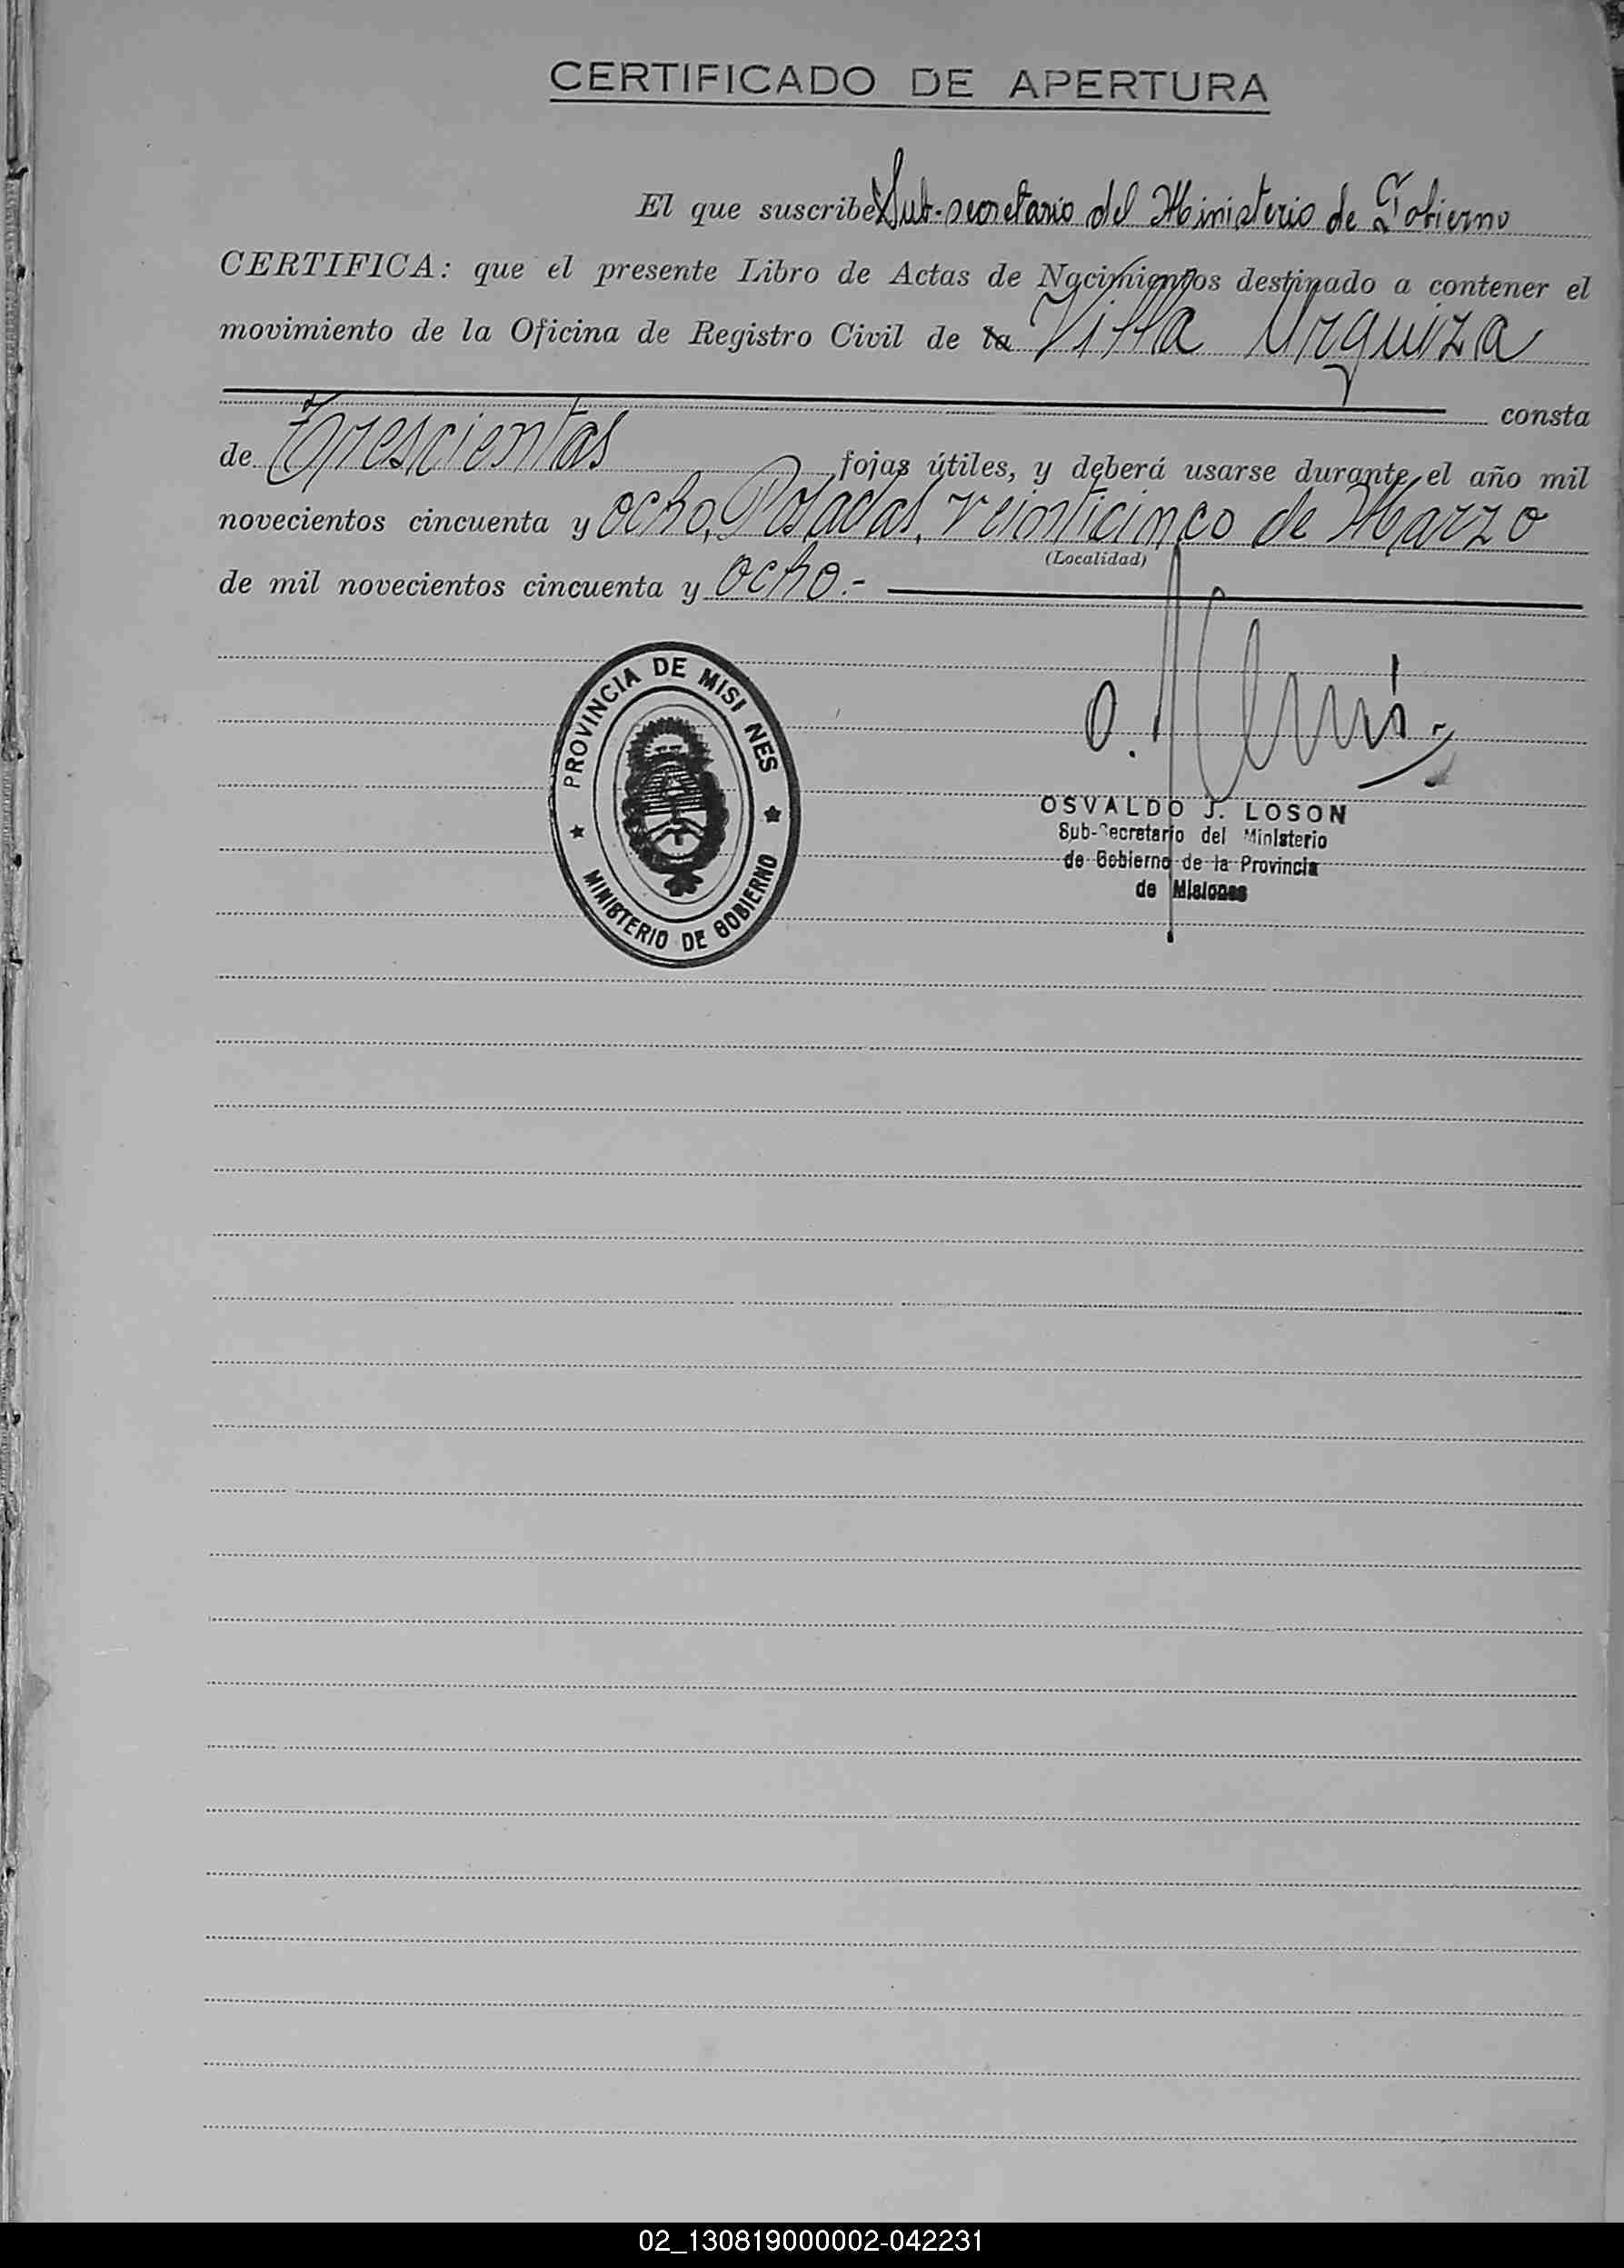 CERTIFICADO DE APERTURA
El que suscribe Sub-secretario del Ministerio de Gobierno
CERTIFICA: que el presente Libro de Actas de Nacimientos destinado a contener el
movimiento de la Oficina de Registro Civil de la Villa Urquiza
consta
de Trescientas fojas útiles, y deberá usarse durante el año mil
novecientos cincuenta y ocho, Posadas, veinticinco de Marzo
(Localidad)
de mil novecientos cincuenta y ocho.-
PROVINCIA DE MISI NES
MINISTERIO DE GOBIERNO
OSVALDO J. LOSON
Sub-Secretario del Ministerio
de Gobierno de la Provincia
de Misiones
02_130819000002-042231